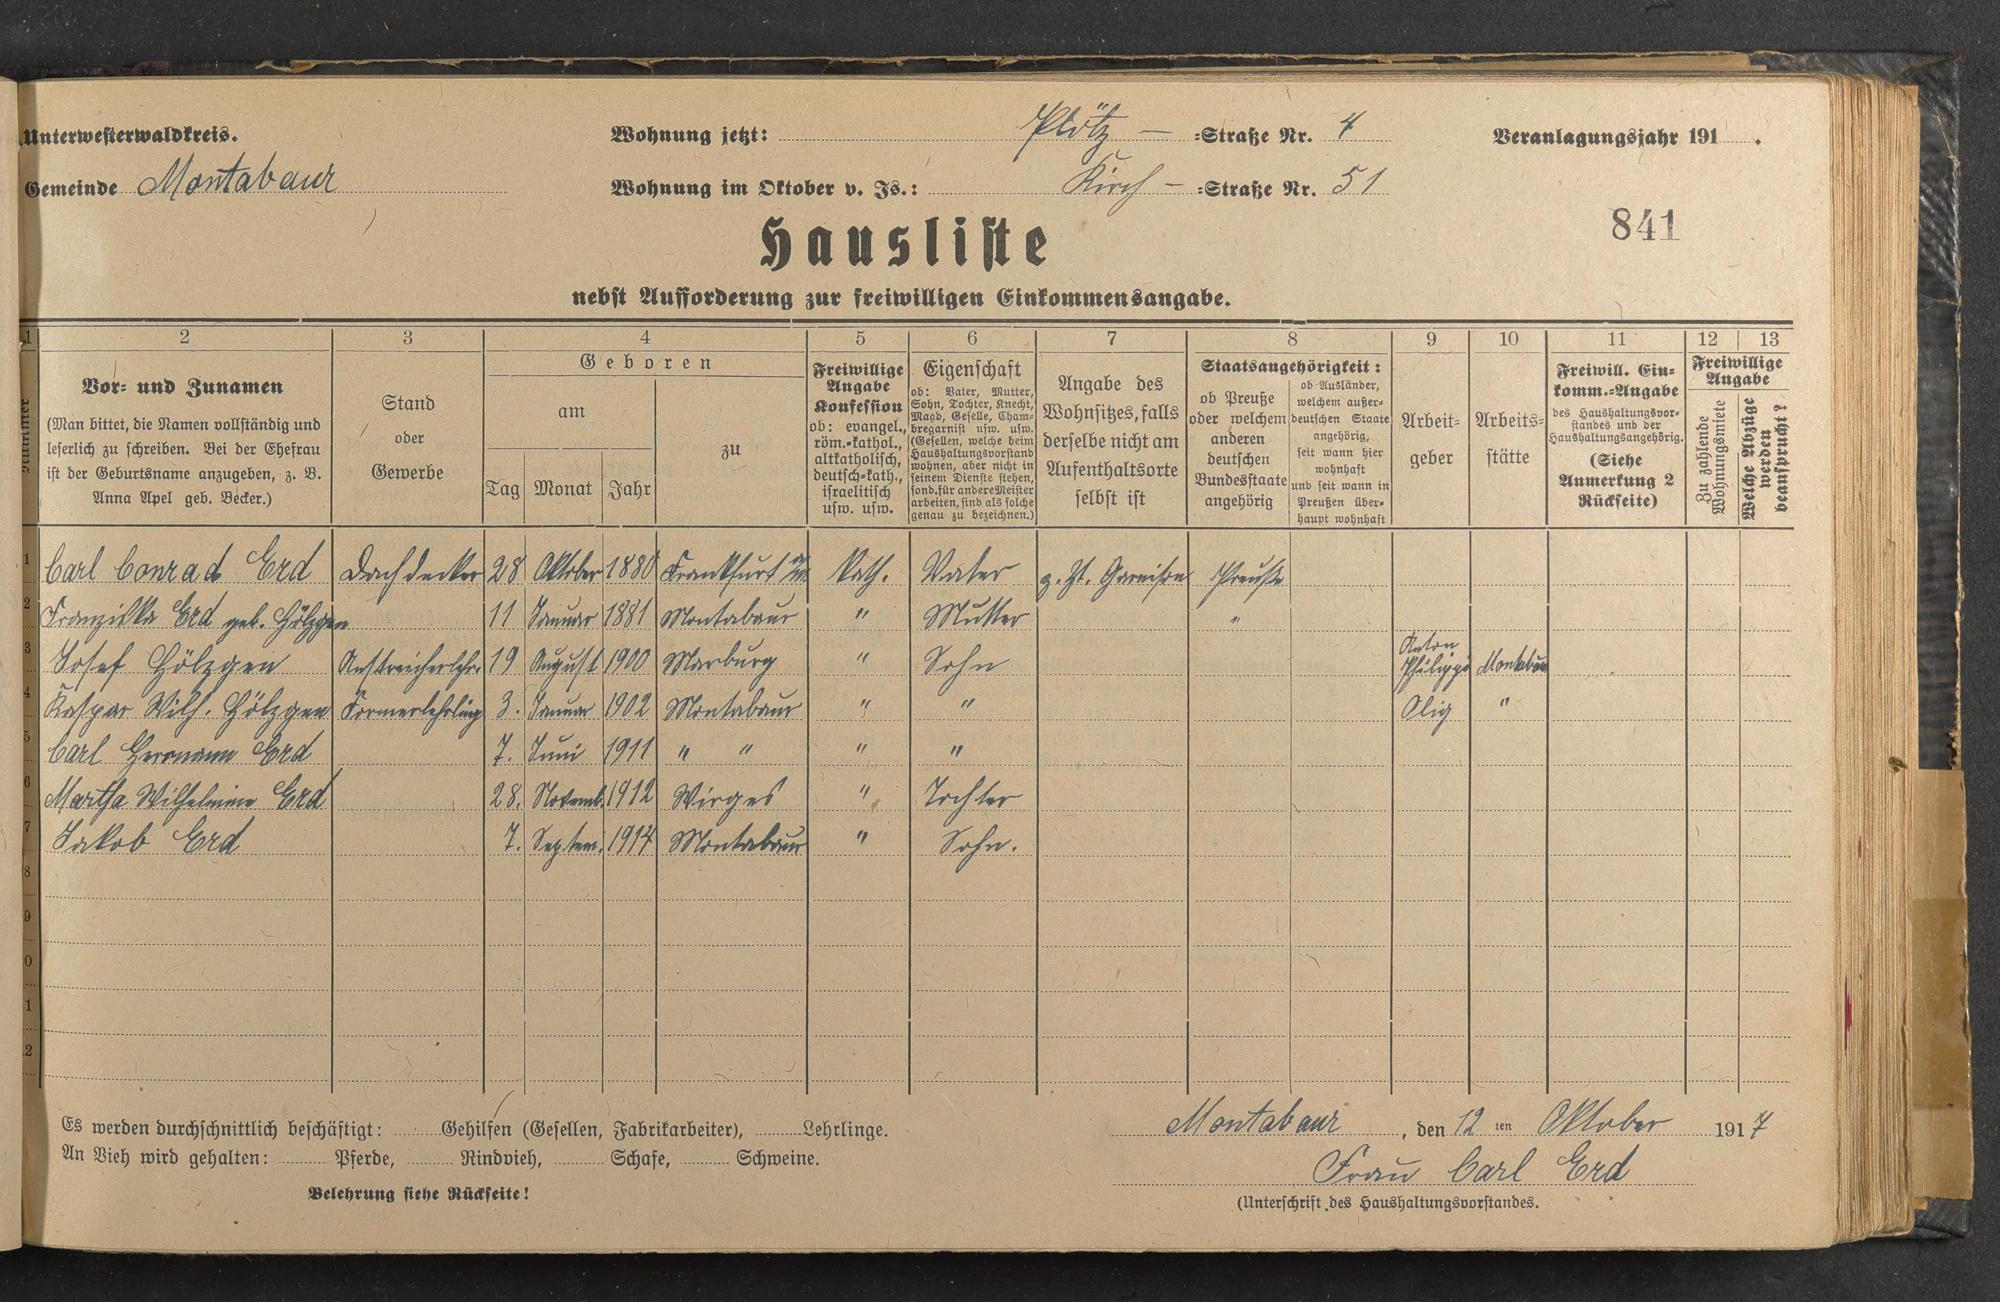 Unterwesterwaldkreis.
Wohnung jetzt: Plötz — =Straße Nr. 4
Veranlagungsjahr 191 .
Gemeinde Montabaur
Wohnung im Oktober v. Js.: Kirch — =Straße Nr. 51
841
Hausliste
nebst Aufforderung zur freiwilligen Einkommensangabe.
1 2 3 4 5 6 7 8 9 10 11 12 13
Nummer
Vor- und Zunamen
(Man bittet, die Namen vollständig und
leserlich zu schreiben. Bei der Ehefrau
ist der Geburtsname anzugeben, z. B.
Anna Apel geb. Becker.)
Stand
oder
Gewerbe
Geboren
am
Tag Monat Jahr
zu
Freiwillige
Angabe
Konfession
ob: evangel.,
röm.-kathol.,
altkatholisch,
deutsch-kath.,
israelitisch
usw. usw.
Eigenschaft
ob: Vater, Mutter,
Sohn, Tochter, Knecht,
Magd, Geselle, Cham-
bregarnist usw. usw.
(Gesellen, welche beim
Haushaltungsvorstand
wohnen, aber nicht in
seinem Dienste stehen,
sond. für andere Meister
arbeiten, sind als solche
genau zu bezeichnen.)
Angabe des
Wohnsitzes, falls
derselbe nicht am
Aufenthaltsorte
selbst ist
Staatsangehörigkeit:
ob Preuße
oder welchem
anderen
deutschen
Bundesstaate
angehörig
ob Ausländer,
welchem außer-
deutschen Staate
angehörig,
seit wann hier
wohnhaft
und seit wann in
Preußen über-
haupt wohnhaft
Arbeit-
geber
Arbeits-
stätte
Freiwill. Ein-
komm.-Angabe
des Haushaltungsvor-
standes und der
Haushaltungsangehörig.
(Siehe
Anmerkung 2
Rückseite)
Freiwillige
Angabe
Zu zahlende
Wohnungsmiete
Welche Abzüge
werden
beansprucht?
1 Carl Conrad Erd Dachdecker 28 Oktober 1880 Frankfurt a/M. Kath. Vater z. Zt. Garnison Preuße
2 Franziska Erd geb. Hölzgen 11 Januar 1881 Montabaur " Mutter "
3 Josef Hölzgen Anstreicherlehr. 19 August 1900 Marburg " Sohn Anton Philippi Montabaur
4 Kaspar Wilh. Hölzgen Formerlehrling 3. Januar 1902 Montabaur " " Olig "
5 Carl Hermann Erd 7. Juni 1911 " " " "
6 Martha Wilhelmine Erd 28. Novemb. 1912 Wirges " Tochter
7 Jakob Erd 7. Septem. 1914 Montabaur " Sohn.
8
9
0
1
2
Es werden durchschnittlich beschäftigt: Gehilfen (Gesellen, Fabrikarbeiter), Lehrlinge.
An Vieh wird gehalten: Pferde, Rindvieh, Schafe, Schweine.
Belehrung siehe Rückseite!
Montabaur, den 12ten Oktober 1917
Frau Carl Erd
(Unterschrift des Haushaltungsvorstandes.